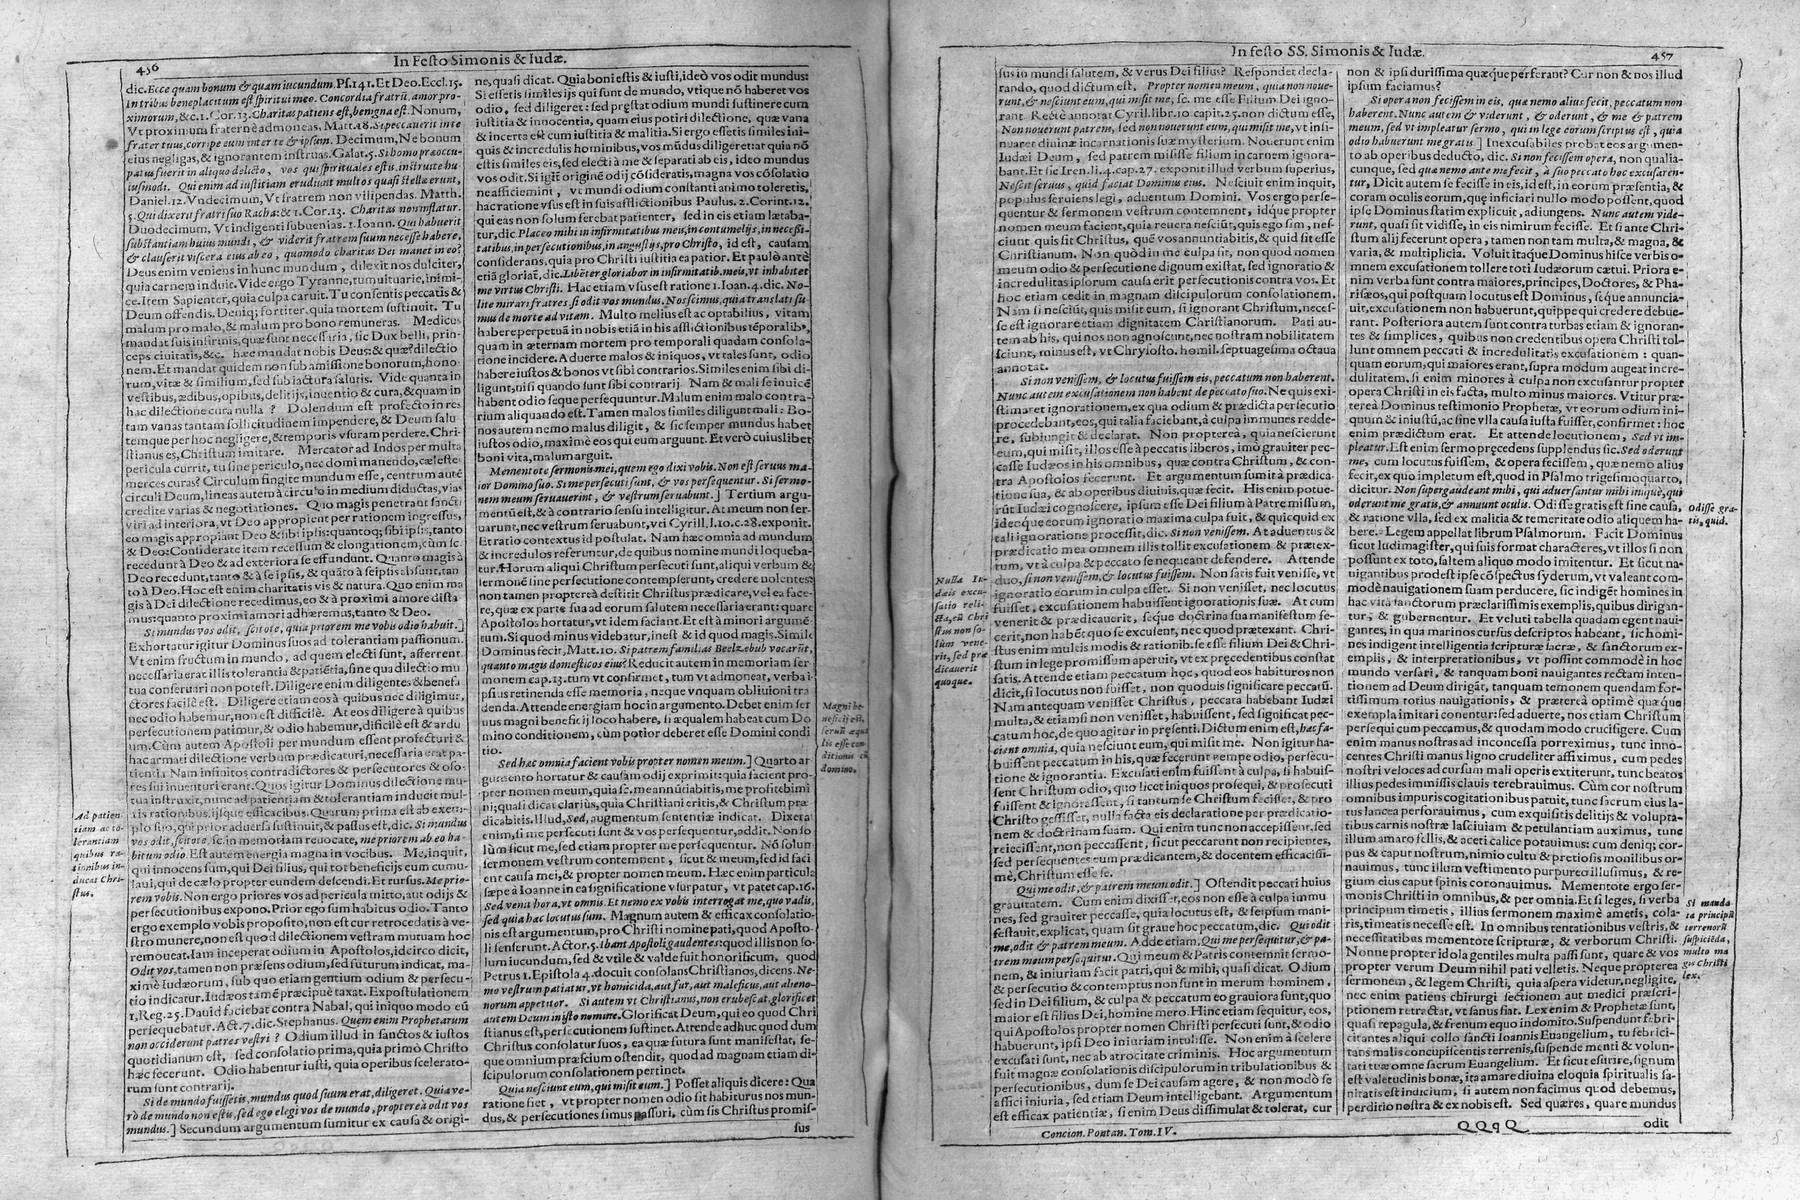 456
In Festo Simonis & Iudæ.
dic. Ecce quam bonum & quam iucundum. Ps.141. Et Deo. Eccl.15.
In tribus beneplacitum est spiritui meo. Concordia fratrū, amor pro-
ximorum, &c. 1. Cor. 13. Charitas patiens est, benigna est. Nonum,
Vt proximum fraternè admoneas. Matt.18. Si peccauerit in te
frater tuus, corripe eum inter te & ipsum. Decimum, Ne bonum
eius negligas, & ignorantem instruas. Galat.5. Si homo præoccu-
patus fuerit in aliquo delicto, vos qui spirituales estis, instruite hu
iusmodi. Qui enim ad iustitiam erudiunt multos quasi stellæ erunt,
Daniel.12. Vndecimum, Vt fratrem non vilipendas. Matth.
5. Qui dixerit fratri suo Racha: & 1. Cor. 13. Charitas non inflatur.
Duodecimum, Vt indigenti subuenias. 1. Ioann. Qui habuerit
substantiam huius mundi, & viderit fratrem suum necesse habere,
& clauserit viscera eius ab eo, quomodo charitas Dei manet in eo?
Deus enim veniens in hunc mundum, dilexit nos dulciter,
quia carnem induit. Vide ergo Tyranne, tumultuarie, inimi-
ce. Item Sapienter, quia culpa caruit. Tu consentis peccatis &
Deum offendis. Deniq; fortiter, quia mortem sustinuit. Tu
malum pro malo, & malum pro bono remuneras. Medicus
mandat suis infirmis, quæ sunt necessaria, sic Dux belli, prin-
ceps ciuitatis, &c. hæc mandat nobis Deus: & quæ? dilectio
nem. Et mandat quidem non sub amissione bonorum, hono-
rum, vitæ & similium, sed sub iactura salutis. Vide quanta in
vestibus, ædibus, opibus, delitijs, inuentio & cura, & quam in
hac dilectione cura nulla? Dolendum est profecto in res
tam vanas tantam sollicitudinem impendere, & Deum salu-
temque per hoc negligere, & temporis vsuram perdere. Chri-
stianus es, Christum imitare. Mercator ad Indos per multa
pericula currit, tu sine periculo, nec domi manendo, cælestes
merces curas? Circulum fingite mundum esse, centrum autē
circuli Deum, lineas autem à circulo in medium diductas, vias
credite varias & negotiationes. Quo magis penetrant sancti
viri ad interiora, vt Deo appropient per rationem ingressus,
eo magis appropiant Deo & sibi ipsis: quantoq; sibi ipsis, tanto
& Deo: Considerate item recessum & elongationem, cùm se
recedunt à Deo & ad exteriora se effundunt. Quanto magis à
Deo recedunt, tanto & à se ipsis, & quāto à seipsis absunt, tan
to à Deo. Hoc est enim charitatis vis & natura. Quo enim ma
gis à Dei dilectione recedimus, eo & à proximi amore dista
mus: quanto proximi amori adhæremus, tanto & Deo.
Si mundus vos odit, scitote, quia priorem me vobis odio habuit.]
Exhortatur igitur Dominus suos ad tolerantiam passionum.
Vt enim fructum in mundo, ad quem electi sunt, afferrent
necessaria erat illis tolerantia & patiētia, sine qua dilectio mu
tua conseruari non potest. Diligere enim diligentes & benefa
ctores facilè est. Diligere etiam eos à quibus nec diligimur,
nec odio habemur, non est difficilè. At eos diligere à quibus
persecutionem patimur, & odio habemur, dificile est & ardu
um. Cùm autem Apostoli per mundum essent profecturi &
hac armati dilectione verbum prædicaturi, necessaria erat pa-
tientia. Nam infinitos contradictores & persecutores & oso-
res sui inuenturi erant. Quos igitur Dominus dilectione mu-
tua instruxit, nunc ad patientiam & tolerantiam inducit mul-
tis rationibus, ijsque efficacibus. Quarum prima est ab exem-
plo suo, qui prior aduersa sustinuit, & passus est, dic. Si mundus
vos odit, scitote, sc. in memoriam reuocate, me priorem ab eo ha-
bitum odio. Est autem energia magna in vocibus. Me, inquit,
qui innocens sum, qui Dei filius, qui tot beneficijs eum cumu
laui, qui de cælo propter eundem descendi. Et rursus. Me prio-
rem vobis. Non ergo priores vos ad pericula mitto, aut odijs &
persecutionibus expono. Prior ego sum habitus odio. Tanto
ergo exemplo vobis proposito, non est cur retrocedatis à ve-
stro munere, non est quod dilectionem vestram mutuam hoc
remoueat. Iam inceperat odium in Apostolos, idcirco dicit,
Odit vos, tamen non præsens odium, sed futurum indicat, ma-
ximè Iudæorum, sub quo etiam gentium odium & persecu-
tio indicatur. Iudæos tamē præcipuè taxat. Expostulationem
1, Reg.25. Dauid faciebat contra Nabal, qui iniquo modo eū
persequebatur. Act.7. dic. Stephanus. Quem enim Prophetarum
non occiderunt patres vestri? Odium illud in sanctos & iustos
quotidianum est, sed consolatio prima, quia primò Christo
hæc fecerunt. Odio habentur iusti, quia operibus scelerato-
rum sunt contrarij.
Si de mundo fuissetis, mundus quod suum erat, diligeret. Quia ve-
rò de mundo non estis, sed ego elegi vos de mundo, propterea odit vos
mundus.] Secundum argumentum sumitur ex causa & origi-
Ad patien
tiam ac to-
lerantiam
quibus ra-
tionibus in-
ducat Chri-
stus.
ne, quasi dicat. Quia boni estis & iusti, ideò vos odit mundus:
Si essetis similes ijs qui sunt de mundo, vtique nō haberet vos
odio, sed diligeret: sed præstat odium mundi sustinere cum
iustitia & innocentia, quam eius potiri dilectione, quæ vana
& incerta est cum iustitia & malitia. Si ergo essetis similes ini-
quis & incredulis hominibus, vos mūdus diligeret: at quia nō
estis similes eis, sed electi à me & separati ab eis, ideo mundus
vos odit. Si igit̃ originē odij cōsideratis, magna vos cōsolatio
ne afficiemini, vt mundi odium constanti animo toleretis,
hac ratione vsus est in suis afflictionibus Paulus. 2. Corint. 12.
qui eas non solum ferebat patienter, sed in eis etiam lætaba-
tur, dic Placeo mihi in infirmitatibus meis, in contumelijs, in necessi-
tatibus, in persecutionibus, in angustijs, pro Christo, id est, causam
considerans, quia pro Christi iustitia ea patior. Et paulò antè
etiā gloriat̃, dic. Libēter gloriabor in infirmitatib. meis, vt inhabitet
me virtus Christi. Hac etiam vsus est ratione 1. Ioan. 4. dic. No-
lite mirari fratres, si odit vos mundus. Nos scimus, quia translati su-
mus de morte ad vitam. Multo melius est ac optabilius, vitam
habere perpetuā in nobis etiā in his afflictionibus tēporalib',
quam in æternam mortem pro temporali quadam consola-
tione incidere. Aduerte malos & iniquos, vt tales sunt, odio
habere iustos & bonos vt sibi contrarios. Similes enim sibi di-
ligunt, nisi quando sunt sibi contrarij. Nam & mali se inuicē
habent odio seque persequuntur. Malum enim malo contra-
rium aliquando est. Tamen malos similes diligunt mali: Bo-
nos autem nemo malus diligit, & sic semper mundus habet
iustos odio, maximè eos qui eum arguunt. Et verò cuiuslibet
boni vita, malum arguit.
Mementote sermonis mei, quem ego dixi vobis. Non est seruus ma-
ior Domino suo. Si me persecuti sunt, & vos persequentur. Si sermo-
nem meum seruauerint, & vestrum seruabunt.] Tertium argu-
mentū est, & à contrario sensu intelligitur. At meum non ser-
uarunt, nec vestrum seruabunt, vti Cyrill. l.10. c.28. exponit.
Et ratio contextus id postulat. Nam hæc omnia ad mundum
& incredulos referuntur, de quibus nomine mundi loqueba-
tur. Horum aliqui Christum persecuti sunt, aliqui verbum &
sermonē sine persecutione contempserunt, credere nolentes:
non tamen propterea destitit Christus prædicare, vel ea face-
re, quæ ex parte sua ad eorum salutem necessaria erant: quare
Apostolos hortatur, vt idem faciant. Et est à minori argumē-
tum. Si quod minus videbatur, inest & id quod magis. Simile
Dominus dixit, Matt. 10. Si patrem familias Beelzebub vocarūt,
quanto magis domesticos eius? Reducit autem in memoriam ser
monem cap. 13. tum vt confirmet, tum vt admoneat, verba i-
psius retinenda esse memoria, neque vnquam obliuioni tra
denda. Attende energiam hoc in argumento. Debet enim ser
uus magni beneficij loco habere, si æqualem habeat cum Do
mino conditionem, cùm potior deberet esse Domini condi
tio.
Sed hæc omnia facient vobis propter nomen meum.] Quarto ar
gumento hortatur & causam odij exprimit: quia facient pro-
pter nomen meum, quia sc. me annūciabitis, me profitebimi
ni; quasi dicat clarius, quia Christiani eritis, & Christum præ
dicabitis. Illud, Sed, augmentum sententiæ indicat. Dixerat
enim, si me persecuti sunt & vos persequentur, addit. Non so
lùm sicut me, sed etiam propter me persequentur. Nō solum
sermonem vestrum contemnent, sicut & meum, sed id faci
ent causa mei, & propter nomen meum. Hæc enim particula
sæpe à Ioanne in ea significatione vsurpatur, vt patet cap. 16.
Sed venit hora, vt omnis. Et nemo ex vobis interrogat me, quo vadis,
sed quia hæc locutus sum. Magnum autem & efficax consolatio-
nis est argumentum, pro Christi nomine pati, quod Aposto-
li senserunt. Actor. 5. Ibant Apostoli gaudentes: quod illis non so-
lum iucundum, sed & vtile & valde fuit honorificum, quod
Petrus 1. Epistola 4. docuit consolans Christianos, dicens. Ne-
mo vestrum patiatur, vt homicida, aut fur, aut maleficus, aut alieno-
norum appetitor. Si autem vt Christianus, non erubescat, glorificet
autem Deum in isto nomine. Glorificat Deum, qui eo quod Chri
stianus est, persecutionem sustinet. Attende adhuc quod dum
Christus consolatur suos, ea quæ futura sunt manifestat, se-
que omnium præscium ostendit, quod ad magnam etiam di-
scipulorum consolationem pertinet.
Quia nesciunt eum, qui misit eum.] Posset aliquis dicere: Qua
ratione fiet, vt propter nomen odio sit habiturus nos mun-
dus, & persecutiones simus passuri, cùm sis Christus promis-
sus
Magni be-
neficij est,
seruū æqua
lis esse con
ditionis cū
domino.
In festo SS. Simonis & Iudæ.
457
sus in mundi salutem, & verus Dei filius? Respondet decla-
rando, quod dictum est, Propter nomen meum, quia non noue-
runt, & nesciunt eum, qui misit me, sc. me esse Filium Dei igno-
rant. Rectè annotat Cyril. libr. 10 capit. 25. non dictum esse,
Non nouerunt patrem, sed non nouerunt eum, qui misit me, vt insi-
nuaret diuinæ incarnationis suæ mysterium. Nouerunt enim
Iudæi Deum, sed patrem misisse filium in carnem ignora-
bant. Et sic Iren. li. 4. cap. 27. exponit illud verbum superius,
Nescit seruus, quid faciat Dominus eius. Nesciuit enim inquit,
populus seruiens legi, aduentum Domini. Vos ergo perse-
quentur & sermonem vestrum contemnent, idque propter
nomen meum facient, quia reuera nesciūt, quis ego sim, nes-
ciunt quis sit Christus, quē vos annuntiabitis, & quid sit esse
Christianum. Non quòd in me culpa sit, non quod nomen
meum odio & persecutione dignum existat, sed ignoratio &
incredulitas ipsorum causa erit persecutionis contra vos. Et
hoc etiam cedit in magnam discipulorum consolationem.
Nam si nesciūt, quis misit eum, si ignorant Christum, neces-
se est ignorare etiam dignitatem Christianorum. Pati au-
tem ab his, qui nos non agnoscunt, nec nostram nobilitatem
sciunt, minus est, vt Chrysosto. homil. septuagesima octaua
annotat.
Si non venissem, & locutus fuissem eis, peccatum non haberent.
Nunc autem excusationem non habent de peccato suo. Ne quis exi-
stimaret ignorationem, ex qua odium & prædicta persecutio
procedebant, eos, qui talia faciebant, à culpa immunes redde-
re, subiungit & declarat. Non propterea, quia nescierunt
eum, qui misit, illos esse à peccatis liberos, imò grauiter pec-
casse Iudæos in his omnibus, quæ contra Christum, & con-
tra Apostolos fecerunt. Et argumentum sumit à prædica-
tione sua, & ab operibus diuinis, quæ fecit. His enim potue-
rūt Iudæi cognoscere, ipsum esse Dei filium à Patre missum,
idecque eorum ignoratio maxima culpa fuit, & quicquid ex
tali ignoratione processit, dic. Si non venissem. At aduentus &
prædicatio mea omnem illis tollit excusationem & prætex-
tum, vt à culpa & peccato se nequeant defendere. Attende
duo, si non venissem, & locutus fuissem. Non satis fuit venisse, vt
ignoratio eorum in culpa esset. Si non venisset, nec locutus
fuisset, excusationem habuissent ignorationis suæ. At cum
venerit & prædicauerit, seque doctrina sua manifestum fe-
cerit, non habēt quo se excusent, nec quod prætexant. Chri-
stus enim multis modis & rationib. se esse filium Dei & Chri-
stum in lege promissum aperuit, vt ex præcedentibus constat
satis. Attende etiam peccatum hoc, quod eos habituros non
dicit, si locutus non fuisset, non quoduis significare peccatū.
Nam antequam venisset Christus, peccata habebant Iudæi
multa, & etiamsi non venisset, habuissent, sed significat pec-
catum hoc, de quo agitur in præsenti. Dictum enim est, hæc fa-
cient omnia, quia nesciunt eum, qui misit me. Non igitur ha-
buissent peccatum in his, quæ fecerunt nempe odio, persecu-
tione & ignorantia. Excusati enim fuissent à culpa, si habuis-
sent Christum odio, quo licet iniquos prosequi, & prosecuti
fuissent & ignorassent, si tantum se Christum fecisset, & pro
Christo gessisset, nulla facta eis declaratione per prædicatio-
nem & doctrinam suam. Qui enim tunc non accepissent, sed
reiecissent, non peccassent, sicut peccarunt non recipientes,
sed persequentes eum prædicantem, & docentem efficacissi-
mè, Christum esse se.
Qui me odit, & patrem meum odit.] Ostendit peccati huius
grauitatem. Cum enim dixisset, eos non esse à culpa immu
nes, sed grauiter peccasse, quia locutus est, & seipsum mani-
festauit, explicat, quam sit graue hoc peccatum, dic. Qui odit
me, odit & patrem meum. Adde etiam, Qui me persequitur, & pa-
trem meum persequitur. Qui meum & Patris contemnit sermo-
nem, & iniuriam facit patri, qui & mihi, quasi dicat. Odium
& persecutio & contemptus non sunt in merum hominem,
sed in Dei filium, & culpa & peccatum eo grauiora sunt, quo
maior est filius Dei, homine mero. Hinc etiam sequitur, eos,
qui Apostolos propter nomen Christi persecuti sunt, & odio
habuerunt, ipsi Deo iniuriam intulisse. Non enim à scelere
excusati sunt, nec ab atrocitate criminis. Hoc argumentum
fuit magnæ consolationis discipulorum in tribulationibus &
persecutionibus, dum se Dei causam agere, & non modò se
affici iniuria, sed etiam Deum intelligebant. Argumentum
est efficax patientiæ, si enim Deus dissimulat & tolerat, cur
Concion. Pontan. Tom. IV.
Nulla Iu-
dæis excu-
satio reli-
cta, cū Chri
stus non so-
lùm vene-
rit, sed præ
dicauerit
quoque.
non & ipsi durissima quæque perferant? Cur non & nos illud
ipsum faciamus?
Si opera non fecissem in eis, quæ nemo alius fecit, peccatum non
haberent. Nunc autem & viderunt, & oderunt, & me & patrem
meum, sed vt impleatur sermo, qui in lege eorum scriptus est, quia
odio habuerunt me gratis] Inexcusabiles probat eos argumen-
to ab operibus deducto, dic. Si non fecissem opera, non qualia-
cunque, sed quæ nemo ante me fecit, à suo peccato hoc excusaren-
tur, Dicit autem se fecisse in eis, id est, in eorum præsentia, &
coram oculis eorum, quę inficiari nullo modo possent, quod
ipse Dominus statim explicuit, adiungens. Nunc autem vide-
runt, quasi sit vidisse, in eis nimirum fecisse. Et si ante Chri-
stum alij fecerunt opera, tamen non tam multa, & magna, &
varia, & multiplicia. Voluit itaque Dominus hisce verbis o-
mnem excusationem tollere toti Iudæorum cætui. Priora e-
nim verba sunt contra maiores, principes, Doctores, & Pha-
risæos, qui postquam locutus est Dominus, sęque annuncia-
uit, excusationem non habuerunt, quippe qui credere debue-
rant. Posteriora autem sunt contra turbas etiam & ignoran-
tes & simplices, quibus non credentibus opera Christi tol-
lunt omnem peccati & incredulitatis excusationem: quan-
quam eorum, qui maiores erant, supra modum augeat incre-
dulitatem. si enim minores à culpa non excusantur propter
opera Christi in eis facta, multo minus maiores. Vtitur præ-
tereà Dominus testimonio Prophetæ, vt eorum odium ini-
quum & iniustū, ac sine vlla causa iusta fuisset, confirmet: hoc
enim prædictum erat. Et attende locutionem, Sed vt im-
pleatur. Est enim sermo pręcedens supplendus sic. Sed oderunt
me, cum locutus fuissem, & opera fecissem, quæ nemo alius
fecit, ex quo impletum est, quod in Psalmo trigesimoquarto,
dicitur. Non supergaudeant mihi, qui aduersantur mihi iniquè, qui
oderunt me gratis, & annuunt oculis. Odisse gratis est sine causa,
& ratione vlla, sed ex malitia & temeritate odio aliquem ha-
bere. Legem appellat librum Psalmorum. Facit Dominus
sicut ludimagister, qui suis format characteres, vt illos si non
possunt ex toto, saltem aliquo modo imitentur. Et sicut na-
uigantibus prodest ipse cōspectus syderum, vt valeant com-
modè nauigationem suam perducere, sic indigēt homines in
hac vita sanctorum præclarissimis exemplis, quibus dirigan-
tur, & gubernentur. Et veluti tabella quadam egent naui-
gantes, in qua marinos cursus descriptos habeant, sic homi-
nes indigent intelligentia scripturæ sacræ, & sanctorum ex-
emplis, & interpretationibus, vt possint commodè in hoc
mundo versari, & tanquam boni nauigantes rectam inten-
tionem ad Deum dirigāt, tanquam temonem quendam for-
tissimum totius nauigationis, & prætereà optimè quæque
exempla imitari conentur: sed aduerte, nos etiam Christum
persequi cum peccamus, & quodam modo crucifigere. Cum
enim manus nostras ad inconcessa porreximus, tunc inno-
centes Christi manus ligno crudeliter affiximus, cum pedes
nostri veloces ad cursum mali operis extiterunt, tunc beatos
illius pedes immissis clauis terebrauimus. Cùm cor nostrum
omnibus impuris cogitationibus patuit, tunc sacrum eius la-
tus lancea perforauimus, cum exquisitis delitijs & volupta-
tibus carnis nostræ lasciuiam & petulantiam auximus, tunc
illum amaro fellis, & aceti calice potauimus: cum deniq; cor-
pus & caput nostrum, nimio cultu & pretiosis monilibus or-
nauimus, tunc illum vestimento purpureo illusimus, & re-
gium eius caput spinis coronauimus. Mementote ergo ser-
monis Christi in omnibus, & per omnia. Et si leges, si verba
principum timetis, illius sermonem maximè ametis, cola-
ris, timeatis necesse est. In omnibus tentationibus vestris, &
necessitatibus mementote scripturæ, & verborum Christi.
Nonne propter idola gentiles multa passi sunt, quare & vos
propter verum Deum nihil pati velletis. Neque propterea
sermonem, & legem Christi, quia aspera videtur, negligite,
nec enim patiens chirurgi sectionem aut medici præscri-
ptionem retractat, vt sanus fiat. Lex enim & Prophetæ sunt,
quasi repagula, & frenum equo indomito. Suspendunt febri-
citantes aliqui collo sancti Ioannis Euangelium, tu febrici-
tans malis concupiscentiis terrenis, suspende menti & volun-
tati tuæ omne sacrum Euangelium. Et sicut esurire, signum
est valetudinis bonæ, ita amare diuina eloquia spiritualis sa-
nitatis est indicium, si autem non facimus quod debemus,
perditio nostra & ex nobis est. Sed quæres, quare mundus
QQq Q
odit
Odisse gra-
tis, quid.
Si manda-
ta principū
terrenorū
suspiciēda,
multo ma
gis Christi
lex.